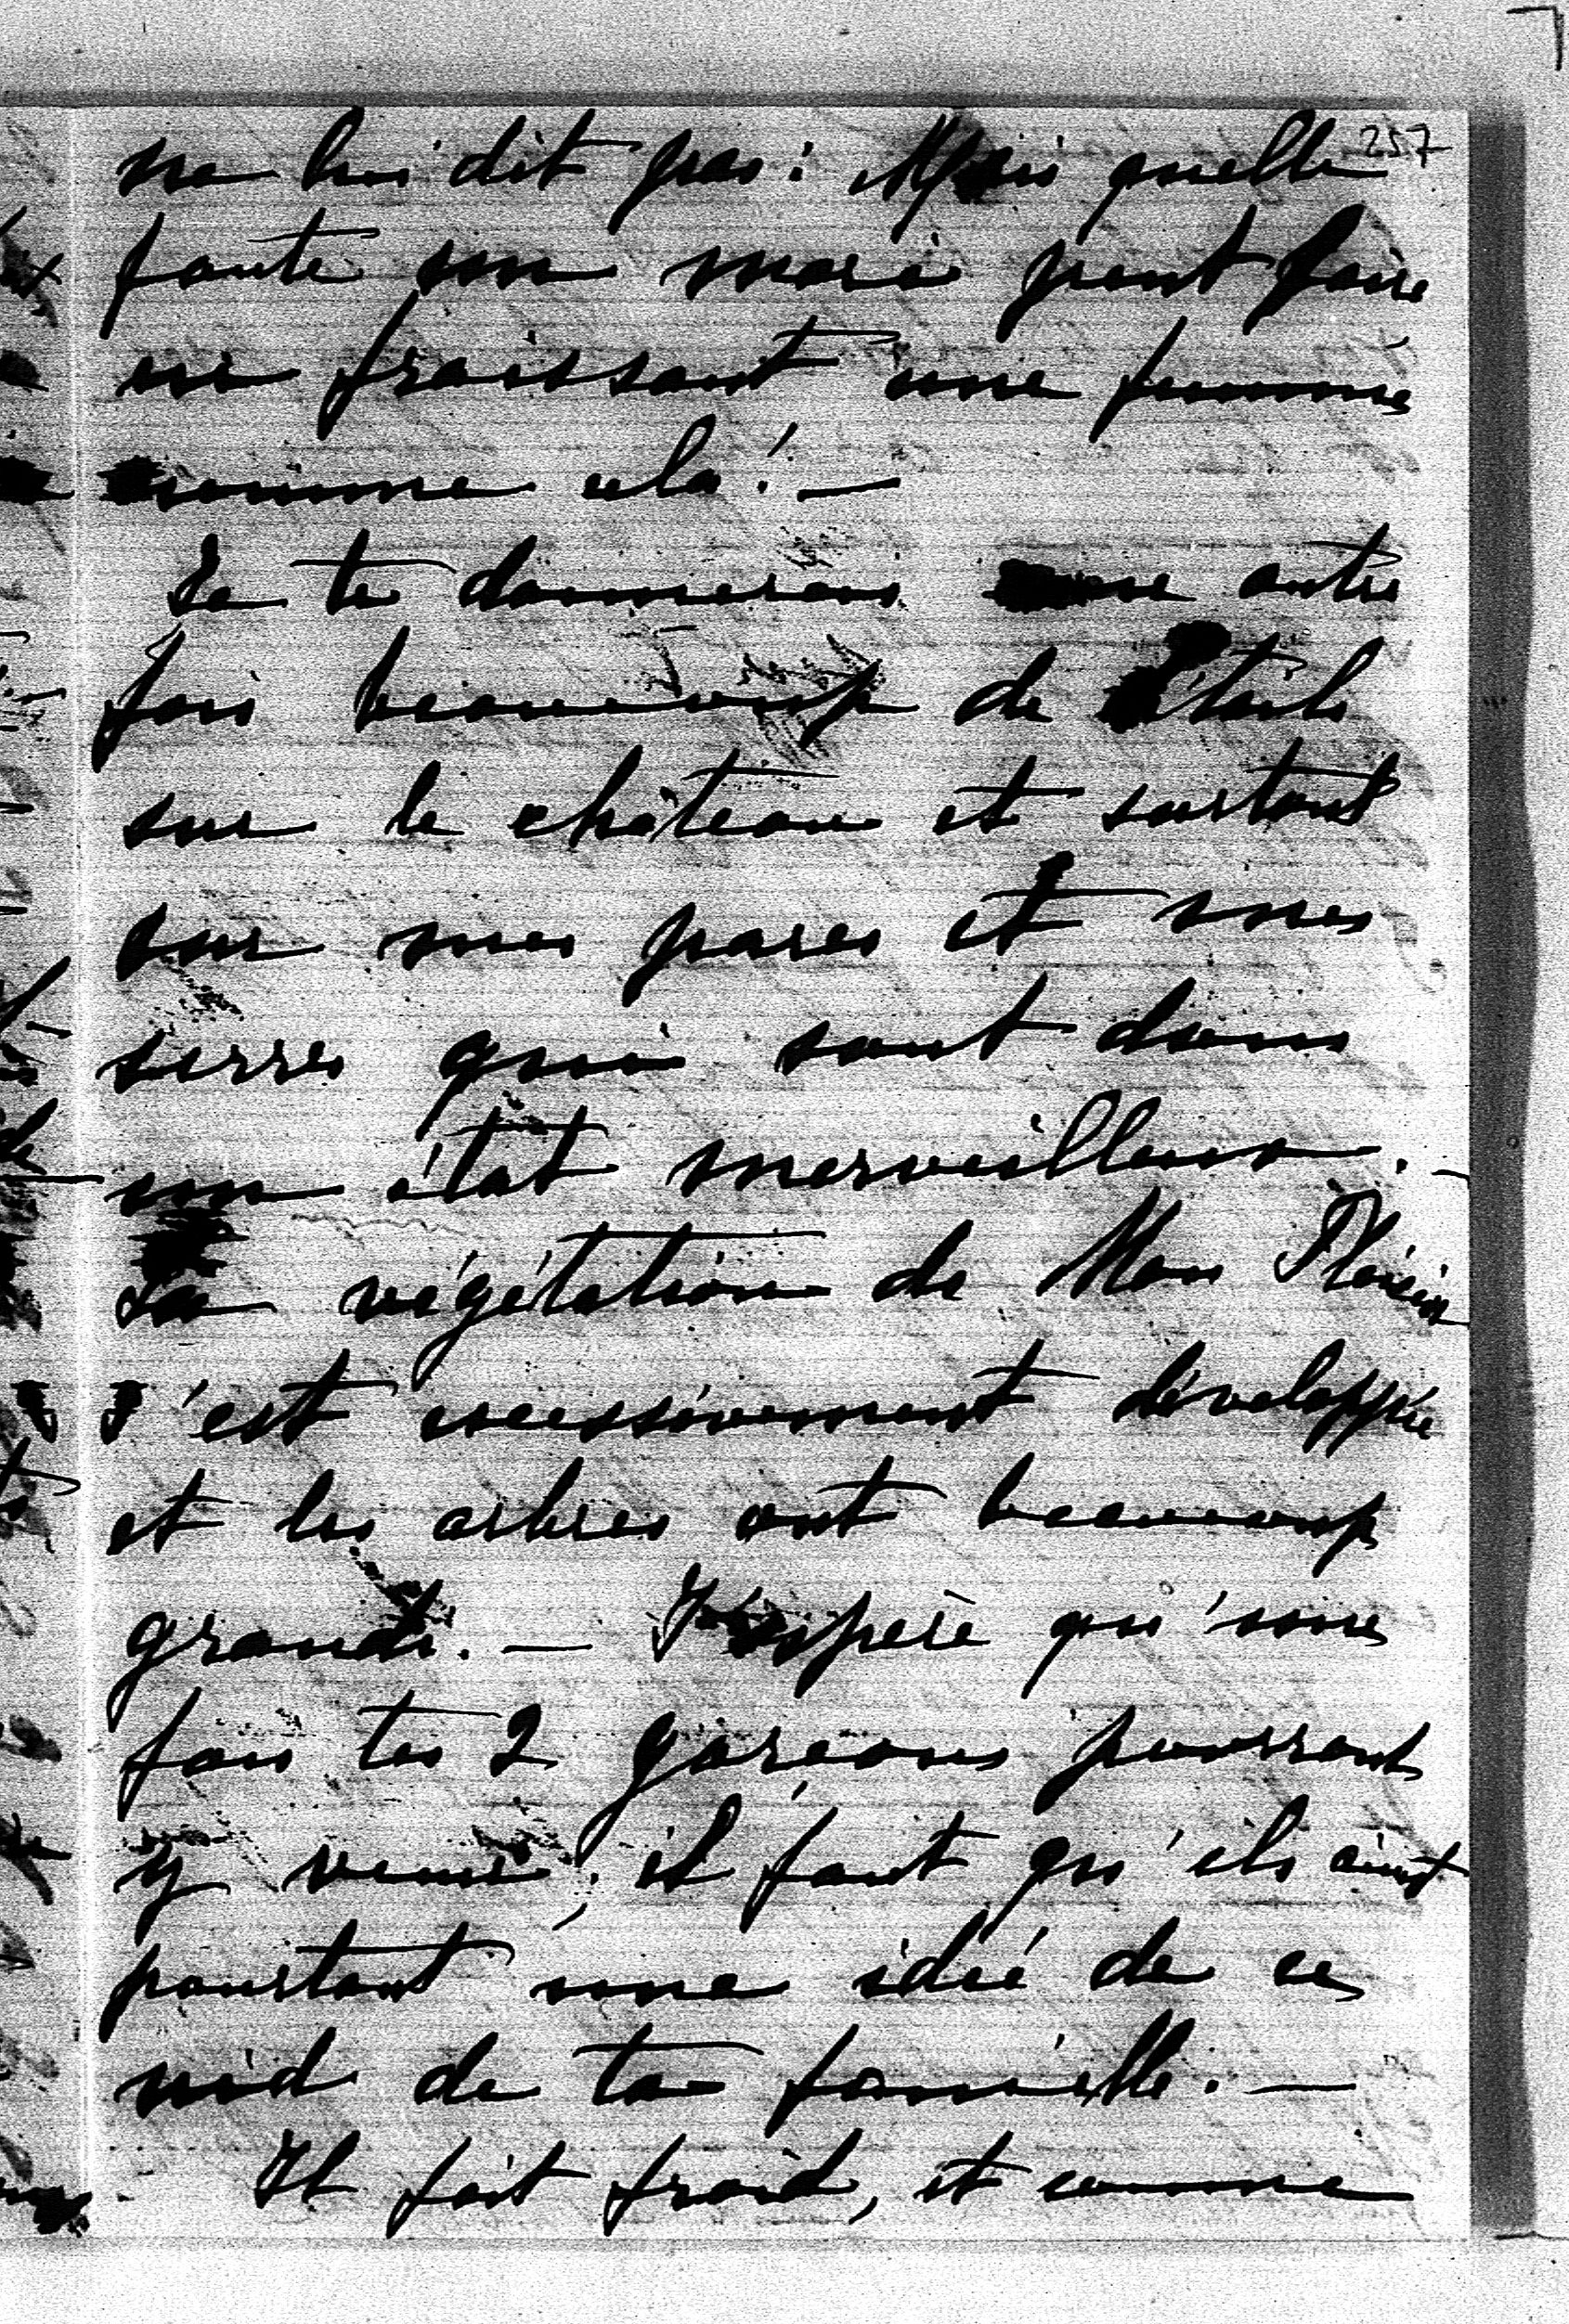 257
ne lui dit pas: Mais quelle
faute un mari peut faire
en froissant une femme
comme cela! —
Je te donnerais une autre
fois beaucoup de détails
sur le château et surtout
sur mes parcs et mes
serres qui sont dans
un état merveilleux. —
La végétation de Mon Plaisir
s'est excessivement développée
et les arbres ont beaucoup
grandi. — J'espère qu'une
fois tes 2 garçons pourront
y venir; il faut qu'ils aient
pourtant une idée de ce
nid de ta famille. —
Il fait froid, et comme